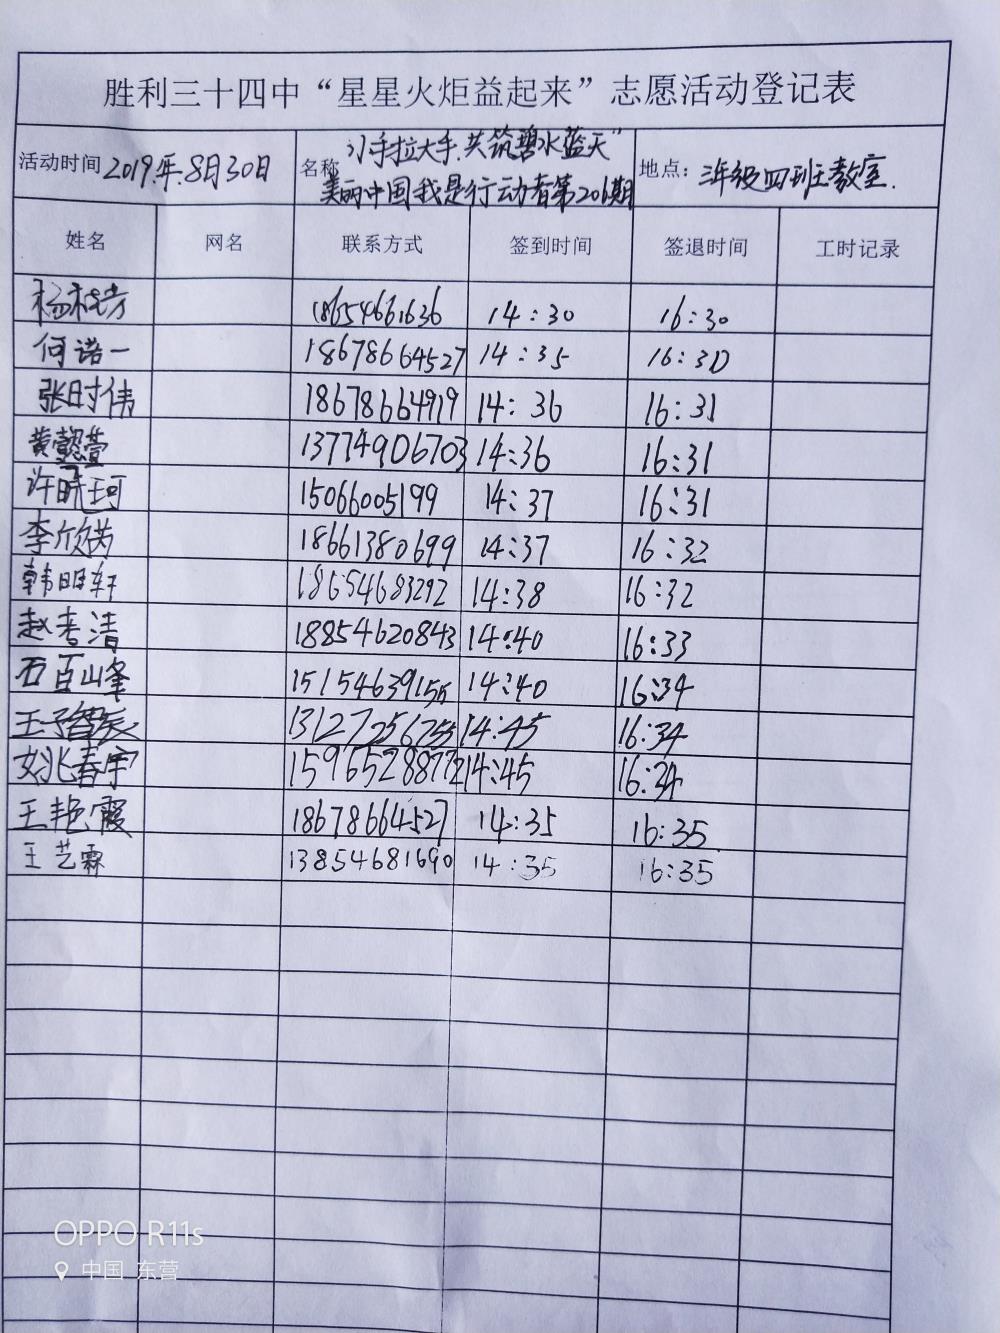 胜利三十四中“星星火炬益起来”志愿活动登记表
活动时间 2019年.8月30日 名称 “小手拉大手.共筑碧水蓝天” 地点: 三年级四班教室.
美丽中国我是行动者第206期
姓名 网名 联系方式 签到时间 签退时间 工时记录
18654661636 14:30 16:30
何诺一 18678664527 14:35 16:30
张时伟 18678664919 14:36 16:31
黄懿萱 13774906703 14:36 16:31
许晓珂 15066005199 14:37 16:31
李欣芮 18661380699 14:37 16:32
韩明轩 18654683292 14:38 16:32
赵孝清 18854620843 14:40 16:33
石百峰 15154639155 14:40 16:34
王子智辰 13127256755 14:45 16:34
姚春宇 15965288772 14:45 16:34
王艳霞 18678664527 14:35 16:35
王艺霖 13854681690 14:35 16:35
OPPO R11s
中国 东营